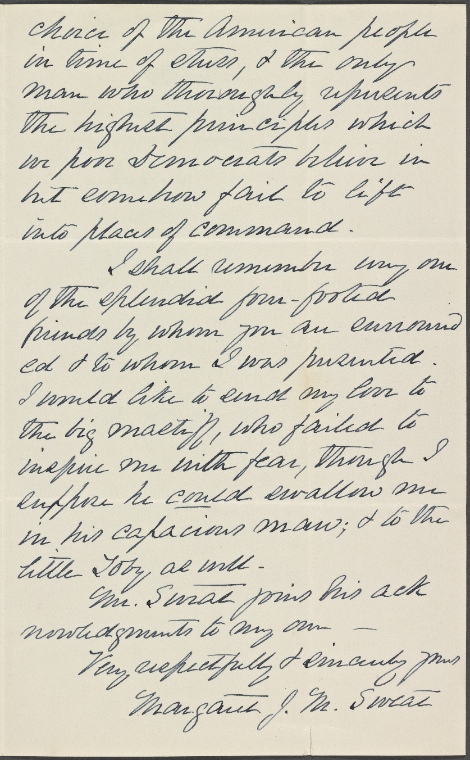 choice of the American people
in time of stress, & the only
man who thoroughly represents
the highest principles which
we poor Democrats believe in
but somehow fail to lift
into places of command.
I shall remember every one
of the splendid four-footed
friends by whom you are surround
ed & to whom I was presented.
I would like to send my love to
the big mastiff, who failed to
inspire me with fear, though I
suppose he could swallow me
in his capacious maw; & to the
little Toby as well.
Mr. Sweat joins his ack
nowledgments to my own —
Very respectfully & sincerely yours
Margaret J. M. Sweat